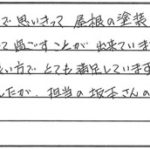 で思いきって 屋根の塗装
て過ごすことが 出来ていま
い方で とても満足しています
したが、担当の坂本さんの